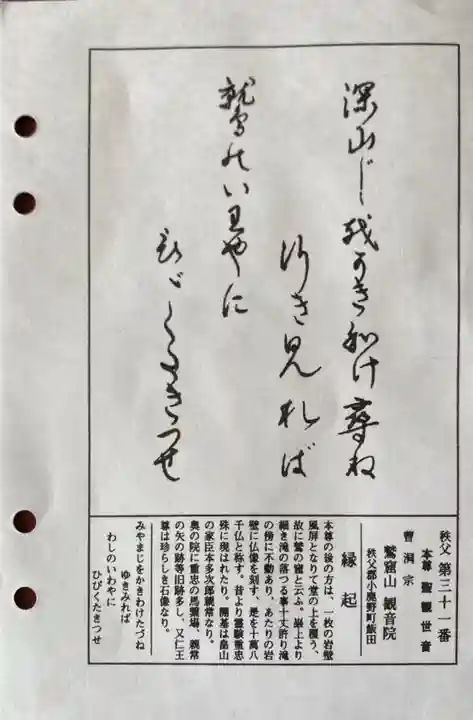 深山じ越かき和け尋ね
行き見れば
鷲能いわやに
ひゞくたきつせ
秩父 第三十一番
本尊 聖観世音
曹洞宗
鷲窟山 観音院
秩父郡小鹿野町飯田
縁起
本尊の後の方は、一枚の岩壁
風屏となりて堂の上を覆う、
故に鷲の窟と云ふ。巌上より
細き滝の落つる事十丈許り滝
の傍に不動あり、あたりの岩
壁に仏像を刻す、是を十万八
千仏と称す。昔より霊験重忠
殊に現はれたり。開基は畠山
の家臣本多次郎親常なり。
奥の院に重忠の馬蹄場、親常
の矢の跡等旧跡多し、又仁王
尊は珍らしき石像なり。
みやまじをかきわけたづね
ゆきみれば
わしのいわやに
ひびくたきつせ